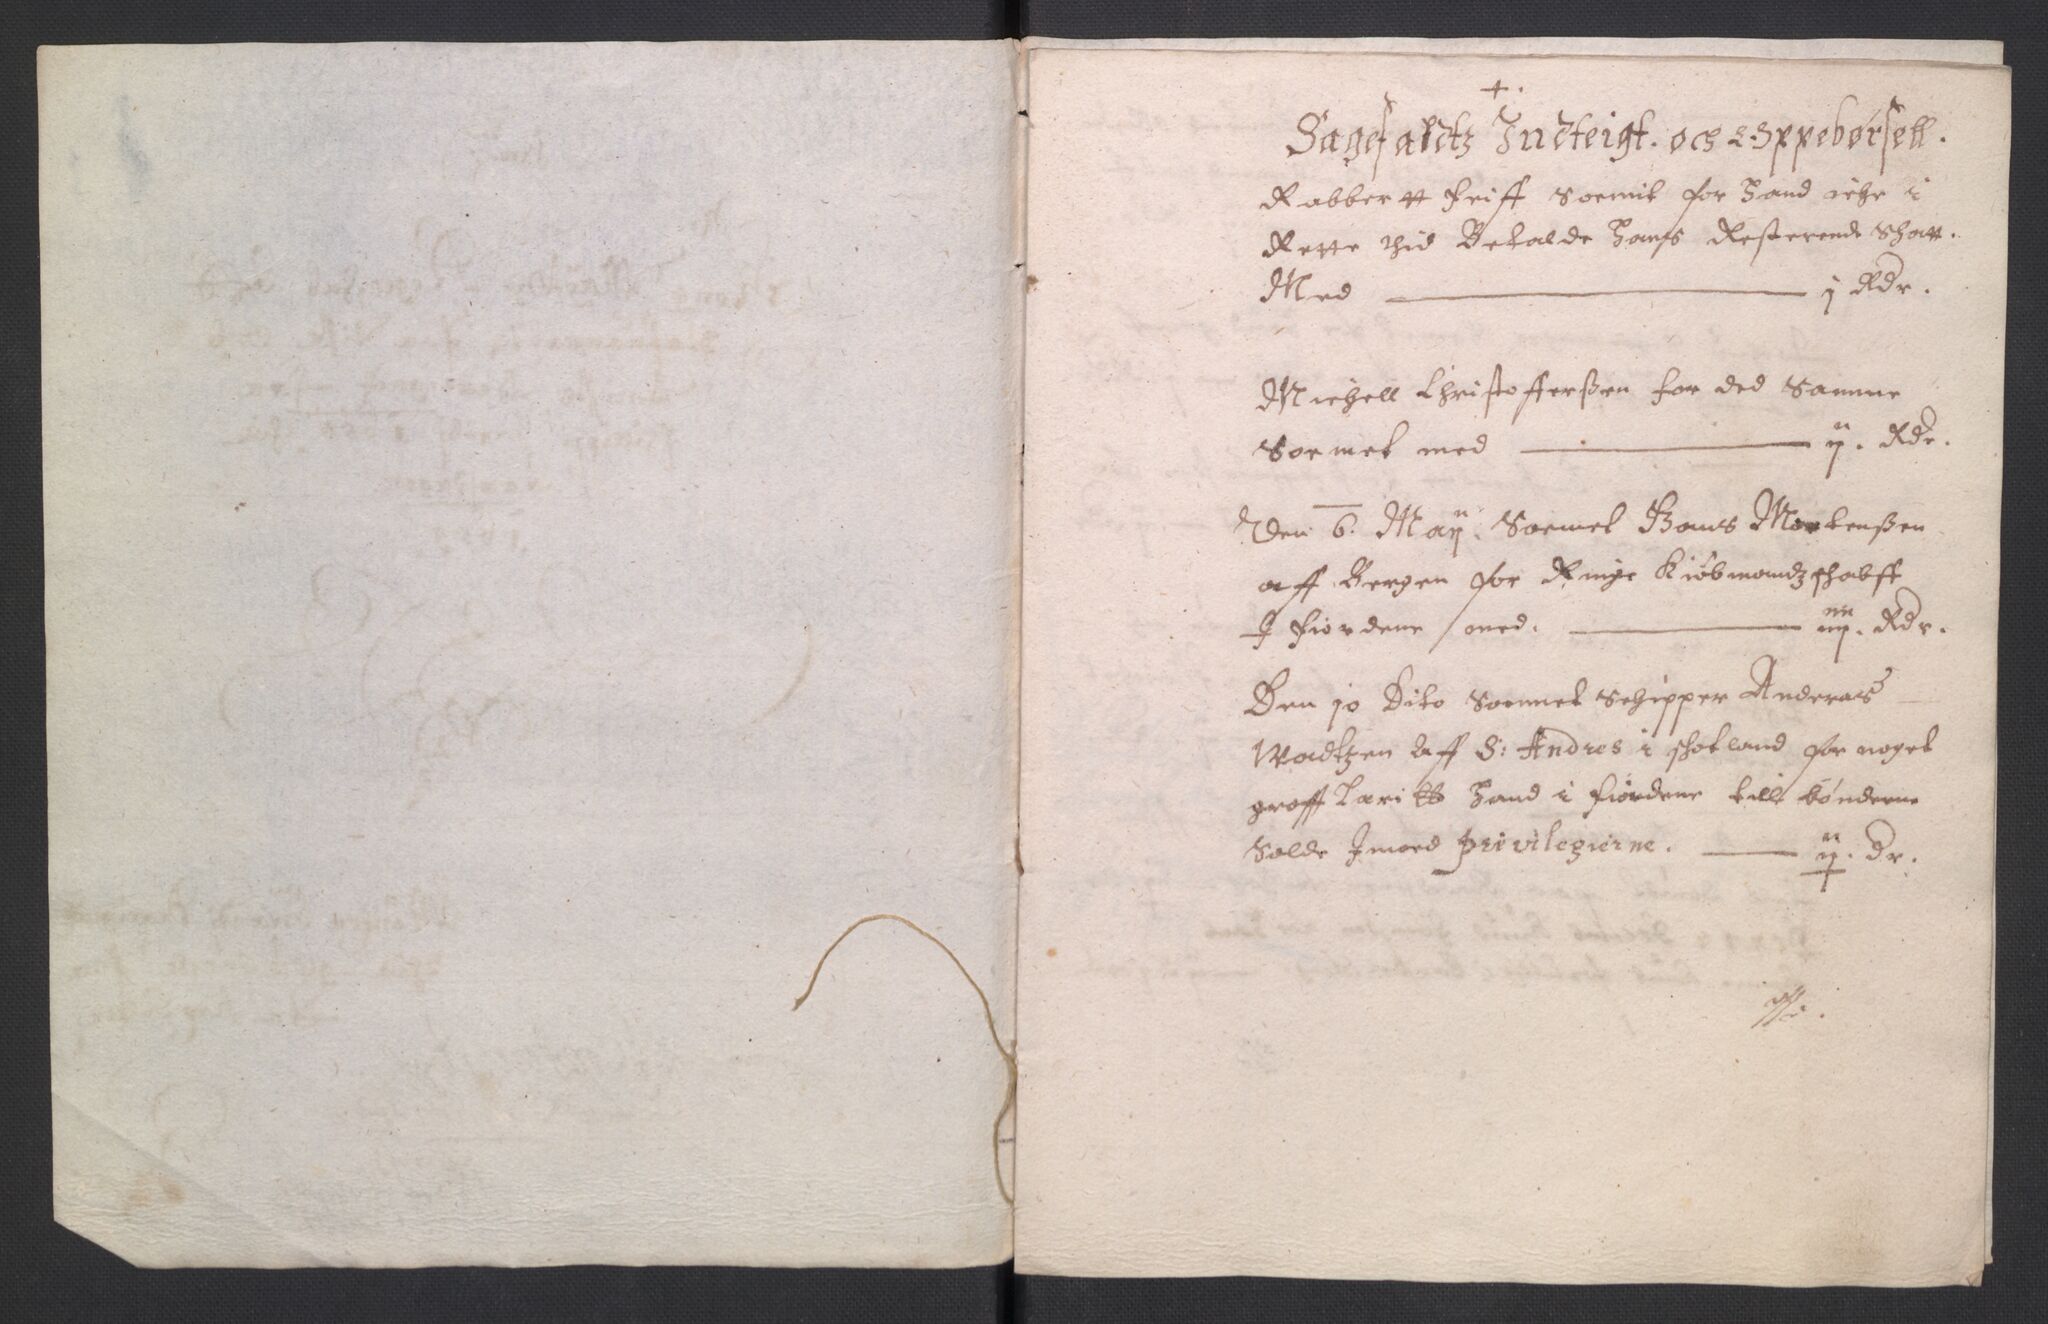 Sagefaldtz Indteigt. och Oppebørsell.
Rabbertt Friff Soemit for hand iche i
Rette thid Betalde hans Resterende Schatt.
Med j Rdr.
Michell Christofferßen for ded Samme
Soemet med ij. Rdr.
Den 6. Maij. Soemet Hans Mortenßen
aff Bergen for Ringe Kiøbmandz schabff
I Fiordene med. iiij. Rdr.
Den 10 Dito Soemet Schipper Anderas
Wadtzen aff S: Andres i schotland for noget
groff hand i Fiordene till bønderne
Solde Imoed privilegierne. ij. dr.